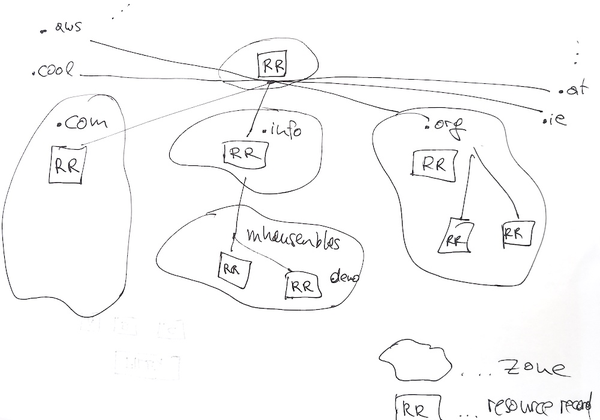 .aws
RR
.cool
.at
.ie
.com
.info
.org
RR
RR
RR
mhausenblas
RR
RR
demo
RR
RR
... zone
RR
... resource record